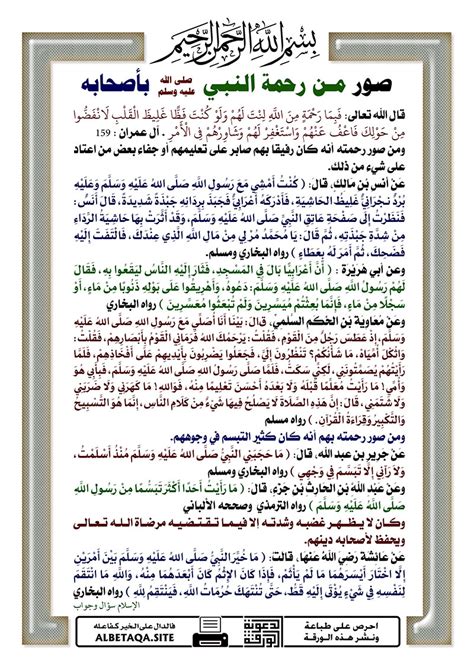 بِسْمِ اللهِ الرَّحْمٰنِ الرَّحِيْمِ
صور من رحمة النبي صلى الله عليه وسلم بأصحابه
قال الله تعالى: فَبِمَا رَحْمَةٍ مِنَ اللَّهِ لِنْتَ لَهُمْ وَلَوْ كُنْتَ فَظًّا غَلِيظَ الْقَلْبِ لَانْفَضُّوا
مِنْ حَوْلِكَ فَاعْفُ عَنْهُمْ وَاسْتَغْفِرْ لَهُمْ وَشَاوِرْهُمْ فِي الْأَمْرِ . آل عمران : 159
ومن صور رحمته أنه كان رفيقا بهم صابر على تعليمهم أو جفاء بعض من اعتاد
على شيء من ذلك.
عَنْ أَنَسِ بْنِ مَالِكٍ، قَالَ: ( كُنْتُ أَمْشِي مَعَ رَسُولِ اللَّهِ صَلَّى اللهُ عَلَيْهِ وَسَلَّمَ وَعَلَيْهِ
بُرْدٌ نَجْرَانِيٌّ غَلِيظُ الْحَاشِيَةِ، فَأَدْرَكَهُ أَعْرَابِيٌّ فَجَبَذَ بِرِدَائِهِ جَبْذَةً شَدِيدَةً، قَالَ أَنَسٌ:
فَنَظَرْتُ إِلَى صَفْحَةِ عَاتِقِ النَّبِيِّ صَلَّى اللهُ عَلَيْهِ وَسَلَّمَ، وَقَدْ أَثَّرَتْ بِهَا حَاشِيَةُ الرِّدَاءِ
مِنْ شِدَّةِ جَبْذَتِهِ، ثُمَّ قَالَ: يَا مُحَمَّدُ مُرْ لِي مِنْ مَالِ اللَّهِ الَّذِي عِنْدَكَ، فَالْتَفَتَ إِلَيْهِ
فَضَحِكَ، ثُمَّ أَمَرَ لَهُ بِعَطَاءٍ ) رواه البخاري ومسلم.
وعَن أَبِي هُرَيْرَةَ : ( أَنَّ أَعْرَابِيًّا بَالَ فِي الْمَسْجِدِ، فَثَارَ إِلَيْهِ النَّاسُ لِيَقَعُوا بِهِ، فَقَالَ
لَهُمْ رَسُولُ اللَّهِ صَلَّى اللهُ عَلَيْهِ وَسَلَّمَ: دَعُوهُ، وَأَهْرِيقُوا عَلَى بَوْلِهِ ذَنُوبًا مِنْ مَاءٍ، أَوْ
سَجْلًا مِنْ مَاءٍ، فَإِنَّمَا بُعِثْتُمْ مُيَسِّرِينَ وَلَمْ تُبْعَثُوا مُعَسِّرِينَ ) رواه البخاري
وعَنْ مُعَاوِيَةَ بْنِ الْحَكَمِ السُّلَمِيِّ، قَالَ: بَيْنَا أَنَا أُصَلِّي مَعَ رَسُولِ اللهِ صَلَّى اللهُ عَلَيْهِ
وَسَلَّمَ، إِذْ عَطَسَ رَجُلٌ مِنَ الْقَوْمِ، فَقُلْتُ: يَرْحَمُكَ اللهُ فَرَمَانِي الْقَوْمُ بِأَبْصَارِهِمْ، فَقُلْتُ:
وَاثُكْلَ أُمِّيَاهْ، مَا شَأْنُكُمْ؟ تَنْظُرُونَ إِلَيَّ، فَجَعَلُوا يَضْرِبُونَ بِأَيْدِيهِمْ عَلَى أَفْخَاذِهِمْ، فَلَمَّا
رَأَيْتُهُمْ يُصَمِّتُونَنِي لَكِنِّي سَكَتُّ، فَلَمَّا صَلَّى رَسُولُ اللهِ صَلَّى اللهُ عَلَيْهِ وَسَلَّمَ، فَبِأَبِي هُوَ
وَأُمِّي! مَا رَأَيْتُ مُعَلِّمًا قَبْلَهُ وَلَا بَعْدَهُ أَحْسَنَ تَعْلِيمًا مِنْهُ، فَوَاللهِ! مَا كَهَرَنِي وَلَا ضَرَبَنِي
وَلَا شَتَمَنِي، قَالَ: إِنَّ هَذِهِ الصَّلَاةَ لَا يَصْلُحُ فِيهَا شَيْءٌ مِنْ كَلَامِ النَّاسِ، إِنَّمَا هُوَ التَّسْبِيحُ
وَالتَّكْبِيرُ وَقِرَاءَةُ الْقُرْآنِ. ) رواه مسلم
ومن صور رحمته بهم أنه كان كثير التبسم في وجوههم.
عَنْ جَرِيرِ بن عبد الله، قَالَ: ( مَا حَجَبَنِي النَّبِيُّ صَلَّى اللهُ عَلَيْهِ وَسَلَّمَ مُنْذُ أَسْلَمْتُ،
وَلَا رَآنِي إِلَّا تَبَسَّمَ فِي وَجْهِي ) رواه البخاري ومسلم
وعَنْ عَبْدِ اللَّهِ بْنِ الحَارِثِ بْنِ جَزْءٍ، قَالَ: ( مَا رَأَيْتُ أَحَدًا أَكْثَرَ تَبَسُّمًا مِنْ رَسُولِ اللَّهِ
صَلَّى اللهُ عَلَيْهِ وَسَلَّمَ ) رواه الترمذي وصححه الألباني
وكان لا يظهر غضبه وشدته إلا فيما تقتضيه مرضاة الله تعالى
ويحفظ لأصحابه دينهم.
عَنْ عَائِشَةَ رَضِيَ اللَّهُ عَنْهَا، قَالَتْ: ( مَا خُيِّرَ النَّبِيُّ صَلَّى اللهُ عَلَيْهِ وَسَلَّمَ بَيْنَ أَمْرَيْنِ
إِلَّا اخْتَارَ أَيْسَرَهُمَا مَا لَمْ يَأْثَمْ، فَإِذَا كَانَ الإِثْمُ كَانَ أَبْعَدَهُمَا مِنْهُ، وَاللَّهِ مَا انْتَقَمَ
لِنَفْسِهِ فِي شَيْءٍ يُؤْتَى إِلَيْهِ قَطُّ، حَتَّى تُنْتَهَكَ حُرُمَاتُ اللَّهِ، فَيَنْتَقِمُ لِلَّهِ ) رواه البخاري
الإسلام سؤال وجواب
احرص على طباعة
ونشر هذه الورقة
الدعوية
الورقة
فالدال على الخير كفاعله
ALBETAQA.SITE